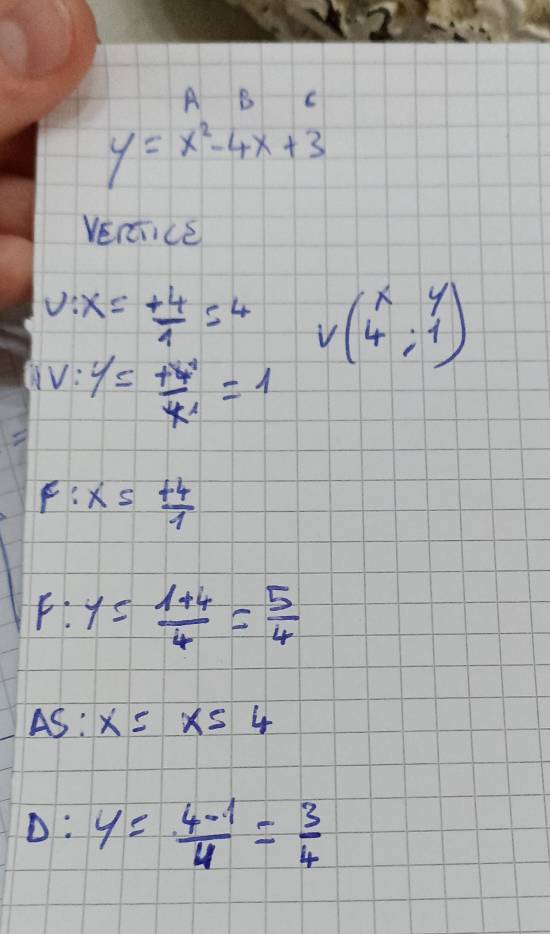 A B C
y = x² - 4x + 3
VERTICE
V: X = +4/1 = 4
V (x y
4 ; 1)
V: Y = +4¹/4¹ = 1
F: X = +4/1
F: Y = 1+4/4 = 5/4
AS: X = X = 4
D: Y = 4-1/4 = 3/4